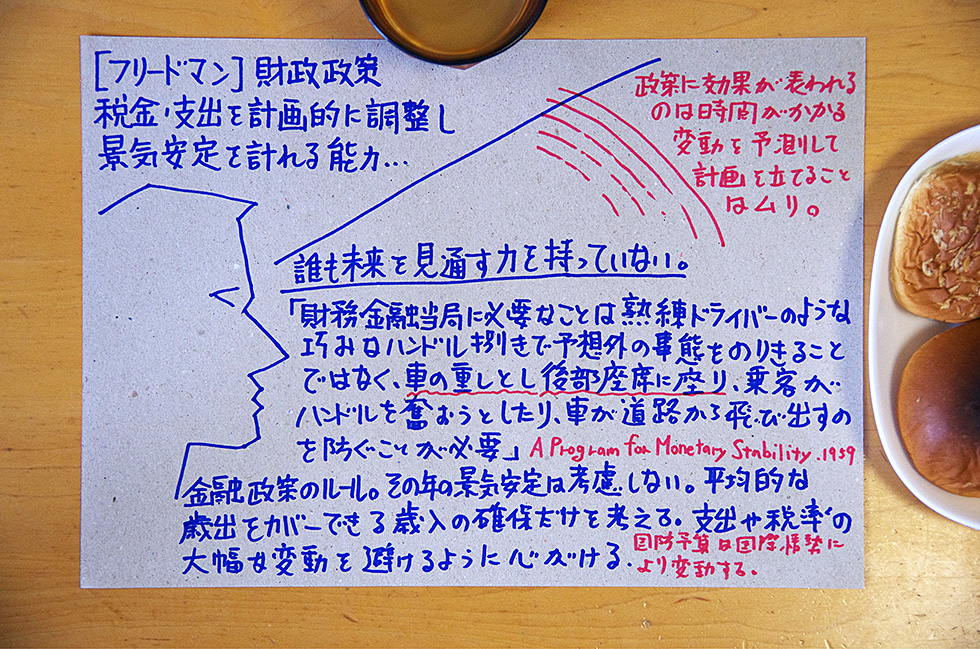 [フリードマン] 財政政策
税金・支出を計画的に調整し
景気安定を計れる能力…
政策に効果が表われる
のは時間がかかる
変動を予測して
計画を立てること
はムリ。
誰も未来を見通す力を持っていない。
「財務金融当局に必要なことは熟練ドライバーのような
巧みなハンドル捌きで予想外の事態をのりきること
ではなく、車の重しとし後部座席に座り、乗客が
ハンドルを奮おうとしたり、車が道路から飛び出すの
を防ぐことが必要」 A Program for Monetary Stability.1959
金融政策のルール。その年の景気安定は考慮しない。平均的な
歳出をカバーできる歳入の確保だけを考える。支出や税率の
大幅な変動を避けるように心がける.
国防予算は国際情勢に
より変動する。